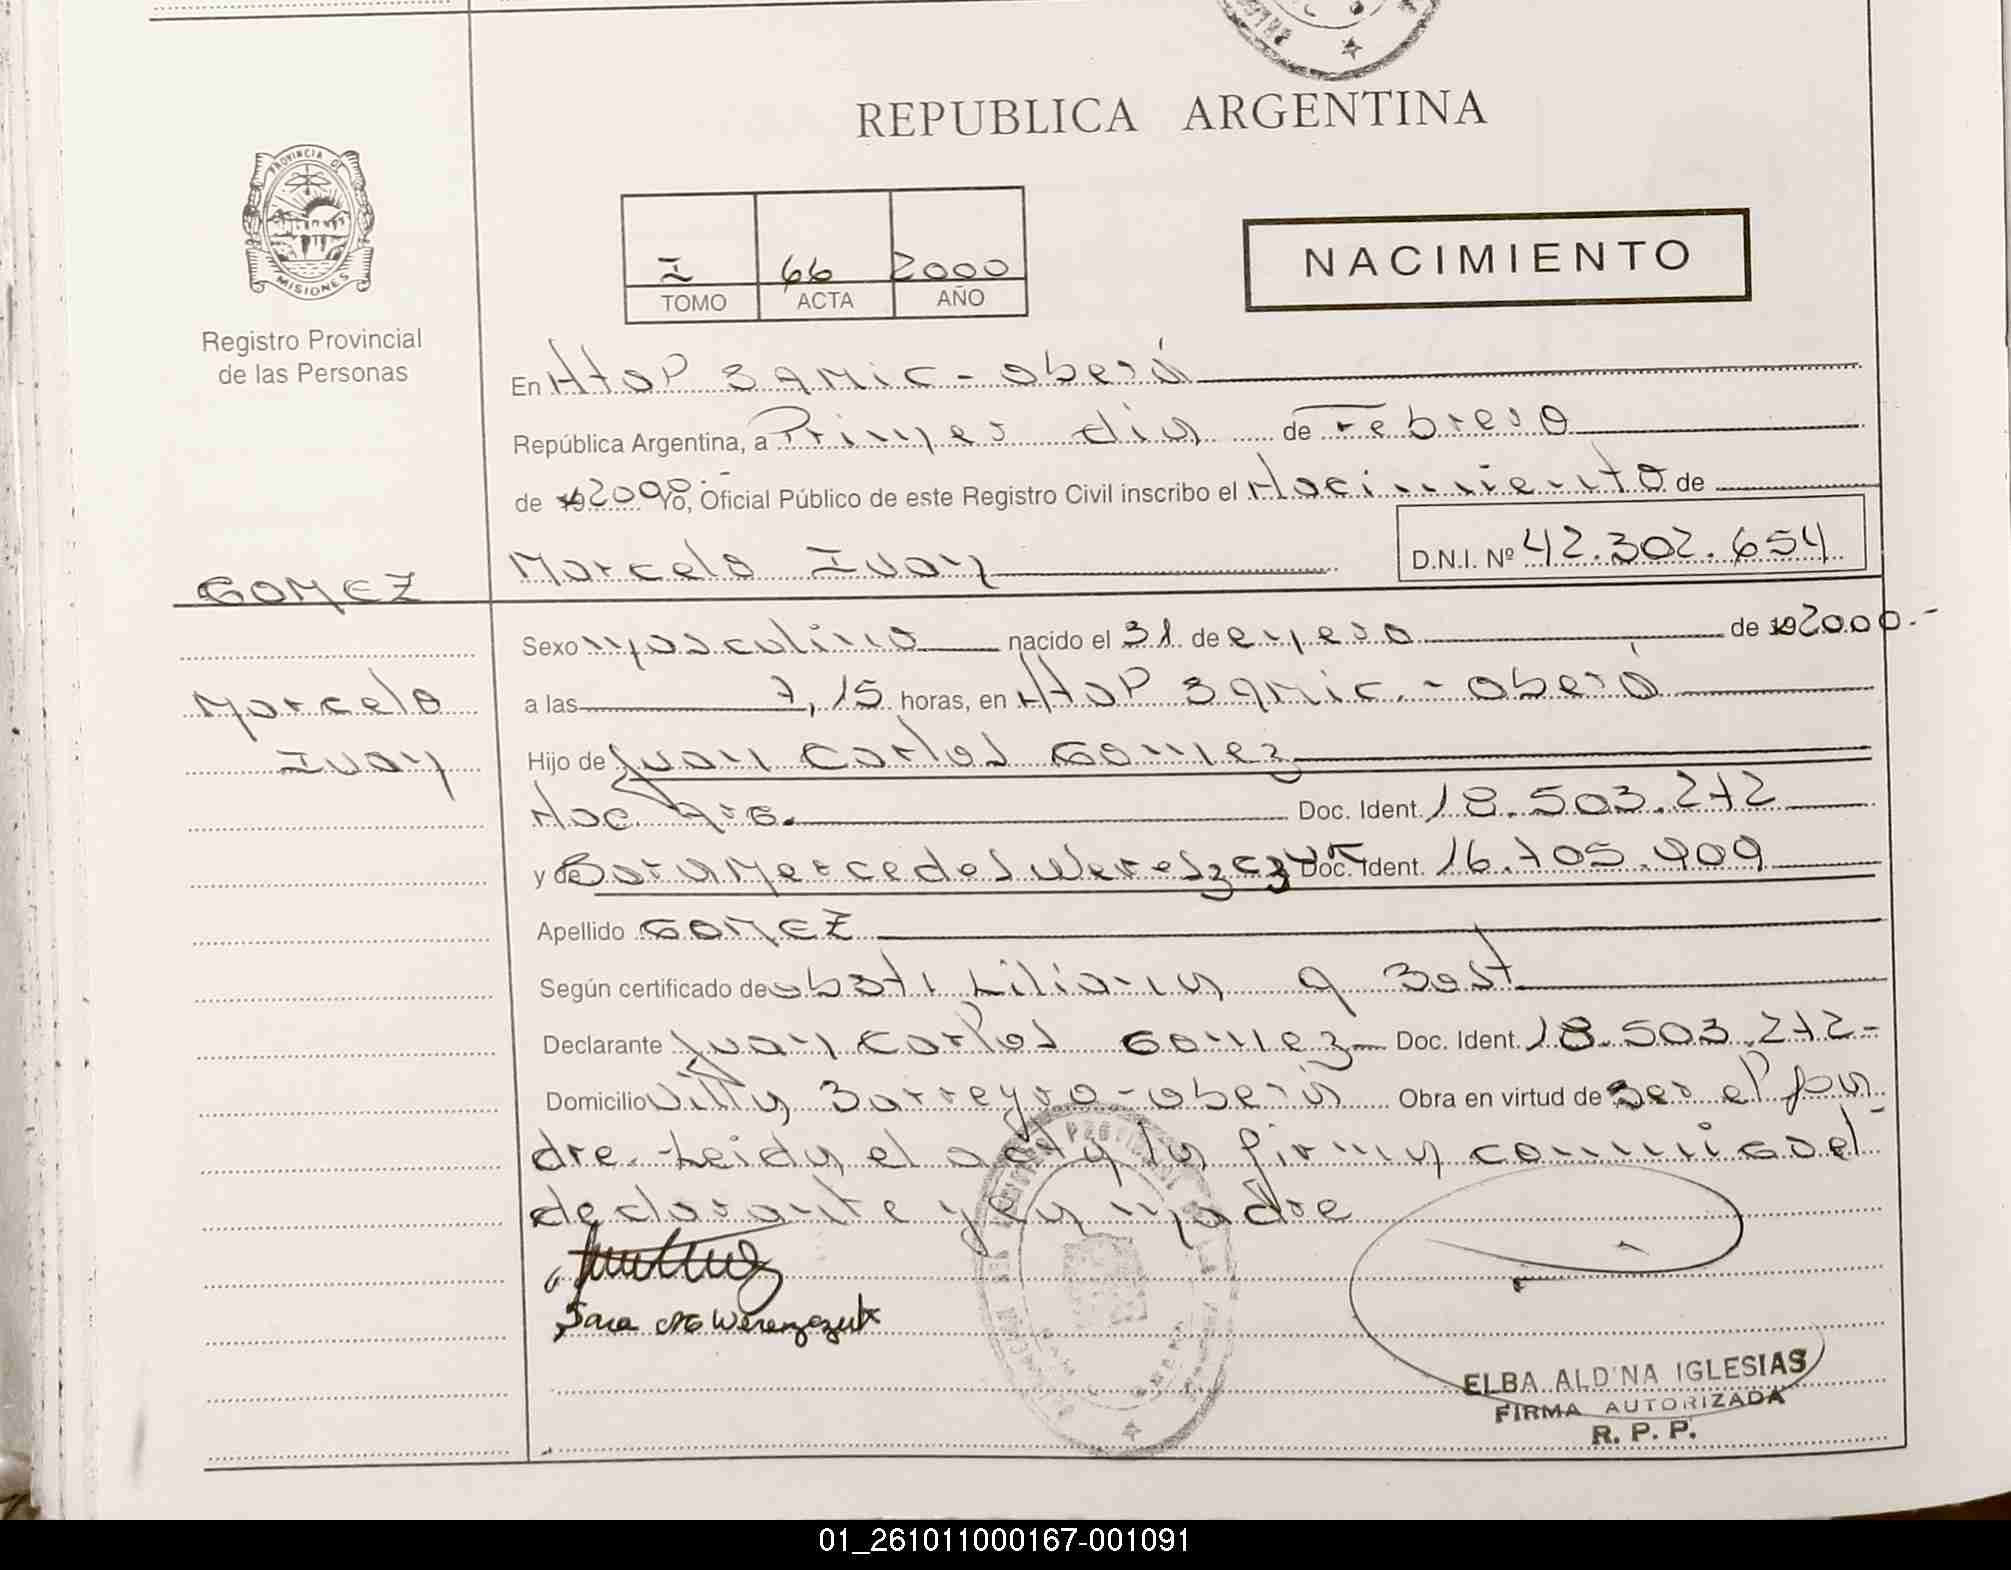 REPUBLICA ARGENTINA
PROVINCIA DE
MISIONES
Registro Provincial
de las Personas
I 66 2000
TOMO ACTA AÑO
NACIMIENTO
En Htal Samic - oberá
República Argentina, a Primer dia de Febrero
de 19 2000.- Yo, Oficial Público de este Registro Civil inscribo el Nacimiento de
Marcelo Ivan D.N.I. Nº 42.302.654
GOMEZ
Marcelo
Ivan
Sexo masculino nacido el 31 de enero de 19 2000.-
a las 7,15 horas, en Htal Samic. - oberá
Hijo de Juan Carlos Gomez
Nac. Arg. Doc. Ident. 18.503.272
y de Sara Mercedes Wereszczuk Doc. Ident. 16.705.909
Apellido GOMEZ
Según certificado de obst. Liliana
Declarante Juan Carlos Gomez - Doc. Ident. 18.503.272-
Domicilio Villa Barreyro - oberá Obra en virtud de Ser el pa-
dre.-Leida el acta la firma conmigo el
declarante y la madre
Sara
ELBA ALDINA IGLESIAS
FIRMA AUTORIZADA
R. P. P.
01_261011000167-001091